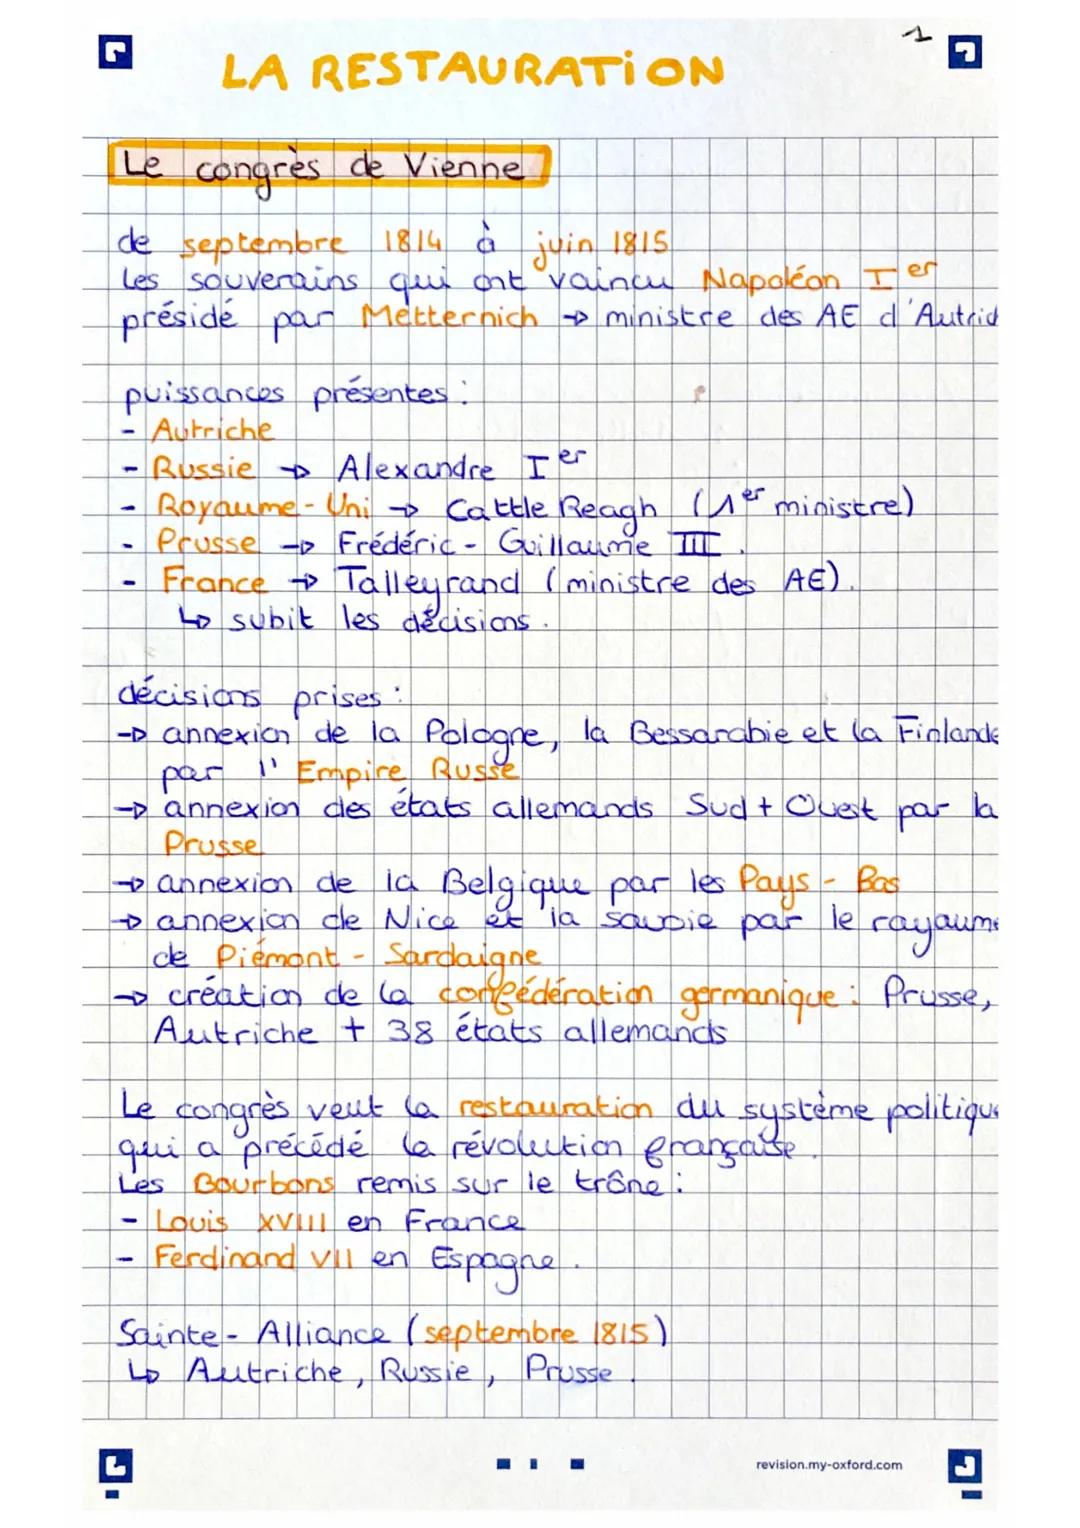 1
LA RESTAURATION
Le congrès de Vienne
de septembre 1814 à juin 1815
Les souverains qui ont vaincu Napoléon Ier
présidé par Metternich → ministre des AE d'Autrich
puissances présentes :
- Autriche
- Russie → Alexandre Ier
- Royaume-Uni → Cattle Reagh (1er ministre)
- Prusse → Frédéric-Guillaume III.
- France → Talleyrand (ministre des AE).
↳ subit les décisions.
décisions prises :
→ annexion de la Pologne, la Bessarabie et la Finlande
par l'Empire Russe
→ annexion des états allemands Sud + Ouest par la
Prusse
→ annexion de la Belgique par les Pays-Bas
→ annexion de Nice et la savoie par le royaume
de Piémont-Sardaigne
→ création de la confédération germanique : Prusse,
Autriche + 38 états allemands
Le congrès veut la restauration du système politique
qui a précédé la révolution française.
Les Bourbons remis sur le trône :
- Louis XVIII en France
- Ferdinand VII en Espagne.
Sainte-Alliance (septembre 1815)
↳ Autriche, Russie, Prusse.
revision.my-oxford.com